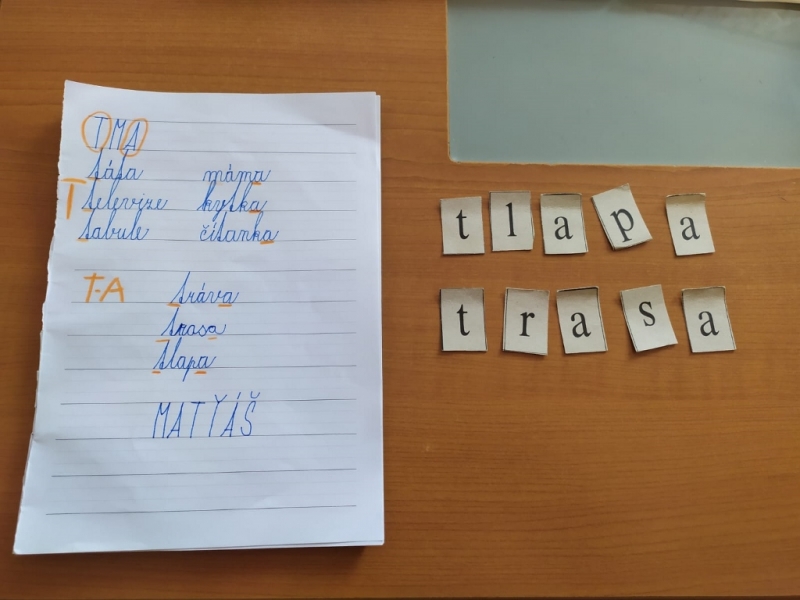 TMA
táta máma
T televize kytka
tabule čítanka
T-A tráva
trasa
tlapa
MATYÁŠ
tlapa
trasa